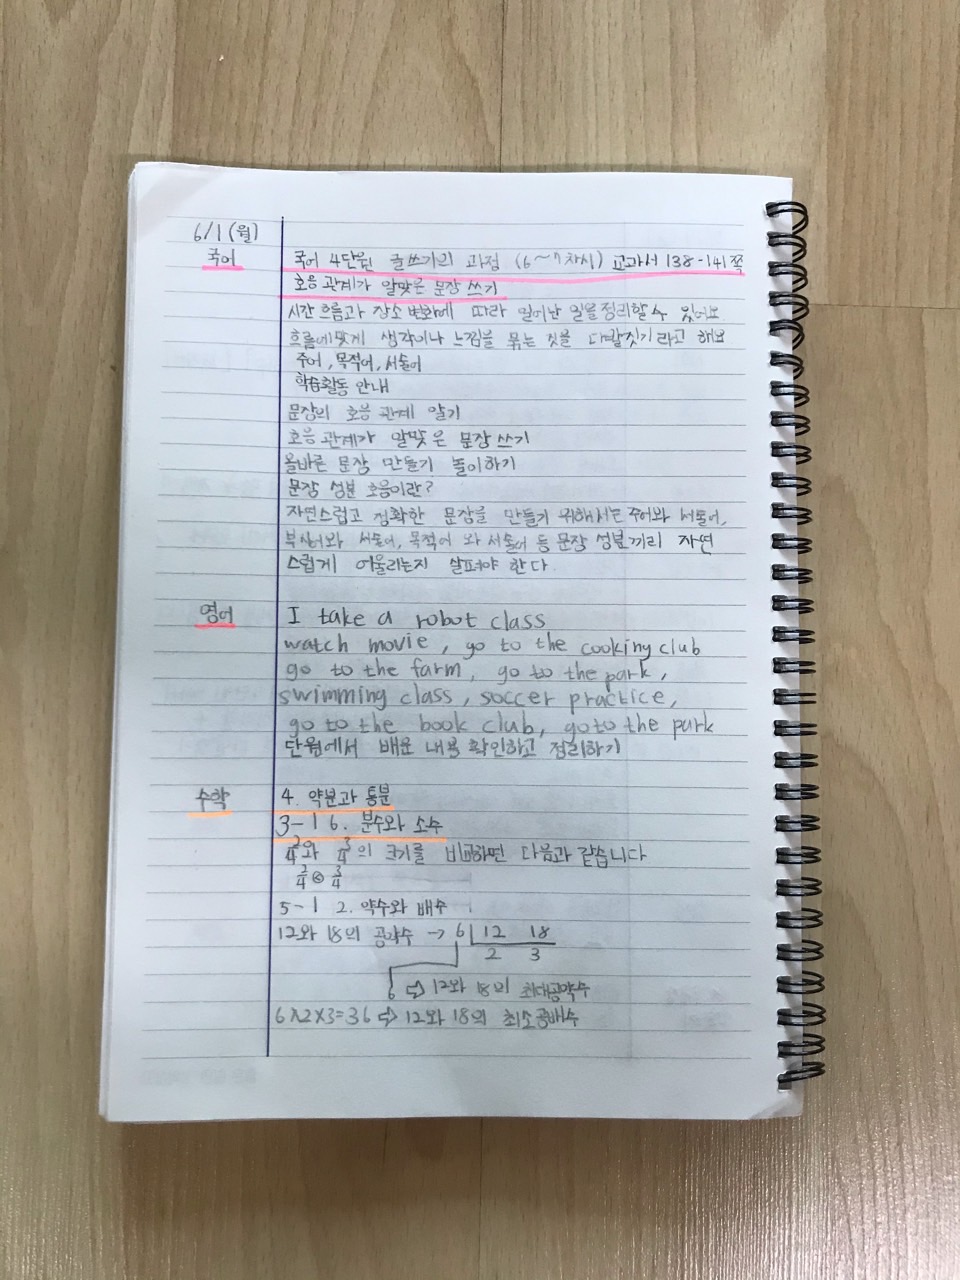 6/1(월)
국어 국어 4단원 글쓰기의 과정 (6~7차시) 교과서 138-141쪽
호응 관계가 알맞은 문장 쓰기
시간 흐름과 장소 변화에 따라 일어난 일을 정리할 수 있어요
흐름에 맞게 생각이나 느낌을 묶는 것을 다발짓기라고 해요
주어, 목적어, 서술어
학습활동 안내
문장의 호응 관계 알기
호응 관계가 알맞은 문장 쓰기
올바른 문장 만들기 놀이하기
문장 성분 호응이란?
자연스럽고 정확한 문장을 만들기 위해서는 주어와 서술어,
부사어와 서술어, 목적어 와 서술어 등 문장 성분끼리 자연
스럽게 어울리는지 살펴야 한다.
영어 I take a robot class
watch movie, go to the cooking club
go to the farm, go to the park,
swimming class, soccer practice,
go to the book club, go to the park
단원에서 배운 내용 확인하고 정리하기
수학 4. 약분과 통분
3-1 6. 분수와 소수
2/4와 3/4의 크기를 비교하면 다음과 같습니다
2/4 < 3/4
5-1 2. 약수와 배수
12와 18의 공약수 → 6 12 18
2 3
6 ⇨ 12와 18의 최대공약수
6×2×3=36 ⇨ 12와 18의 최소공배수